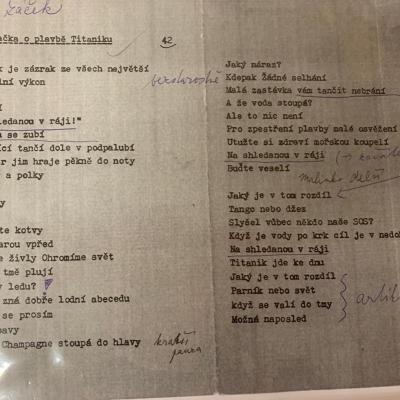 začík
ačka o plavbě Titaniku
42
k je zázrak ze všech největší
lní výkon
bezstarostně
í
ledanou v ráji!"
a se zubí
ící tančí dole v podpalubí
r jim hraje pěkně do noty
y a polky
y
te kotvy
arou vpřed
e živly Ohromíme svět
tmě plují
y ledu?
zná dobře lodní abecedu
se prosím
bavy
Champagne stoupá do hlavy
kratší
pauza
Jaký náraz?
Kdepak Žádné selhání
Malá zastávka vám tančit nebrání
A že voda stoupá?
Ale to nic není
Pro zpestření plavby malé osvěžení
Utužte si zdraví mořskou koupelí
Na shledanou v ráji
Buďte veselí
malinko delší
Jaký je v tom rozdíl
Tango nebo džez
Slyšel vůbec někdo naše SOS?
Když je vody po krk cíl je v nedo
Na shledanou v ráji
Titanik jde ke dnu
Jaký je v tom rozdíl
Parník nebo svět
když se valí do tmy
Možná naposled